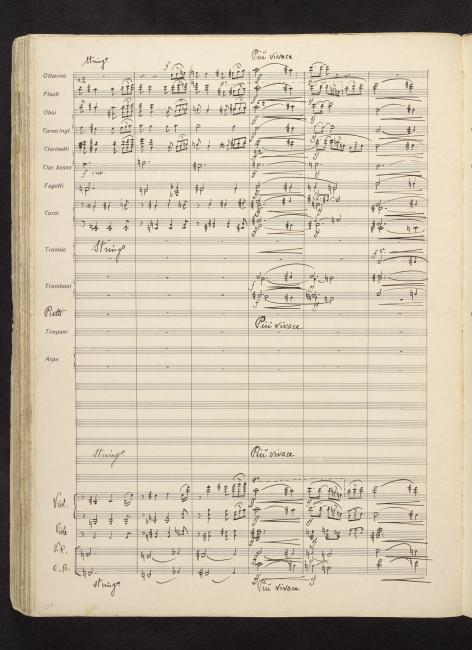 String. Più vivace
Ottavino
Flauti
Oboi
Corno ingl.
Clarinetti
Clar. basso
Fagotti
Corni
Trombe String.
Tromboni
Piatti
Timpani Più vivace
Arpa
String. Più vivace
Viol.
Viole
Vc.
C.B.
String. Più vivace